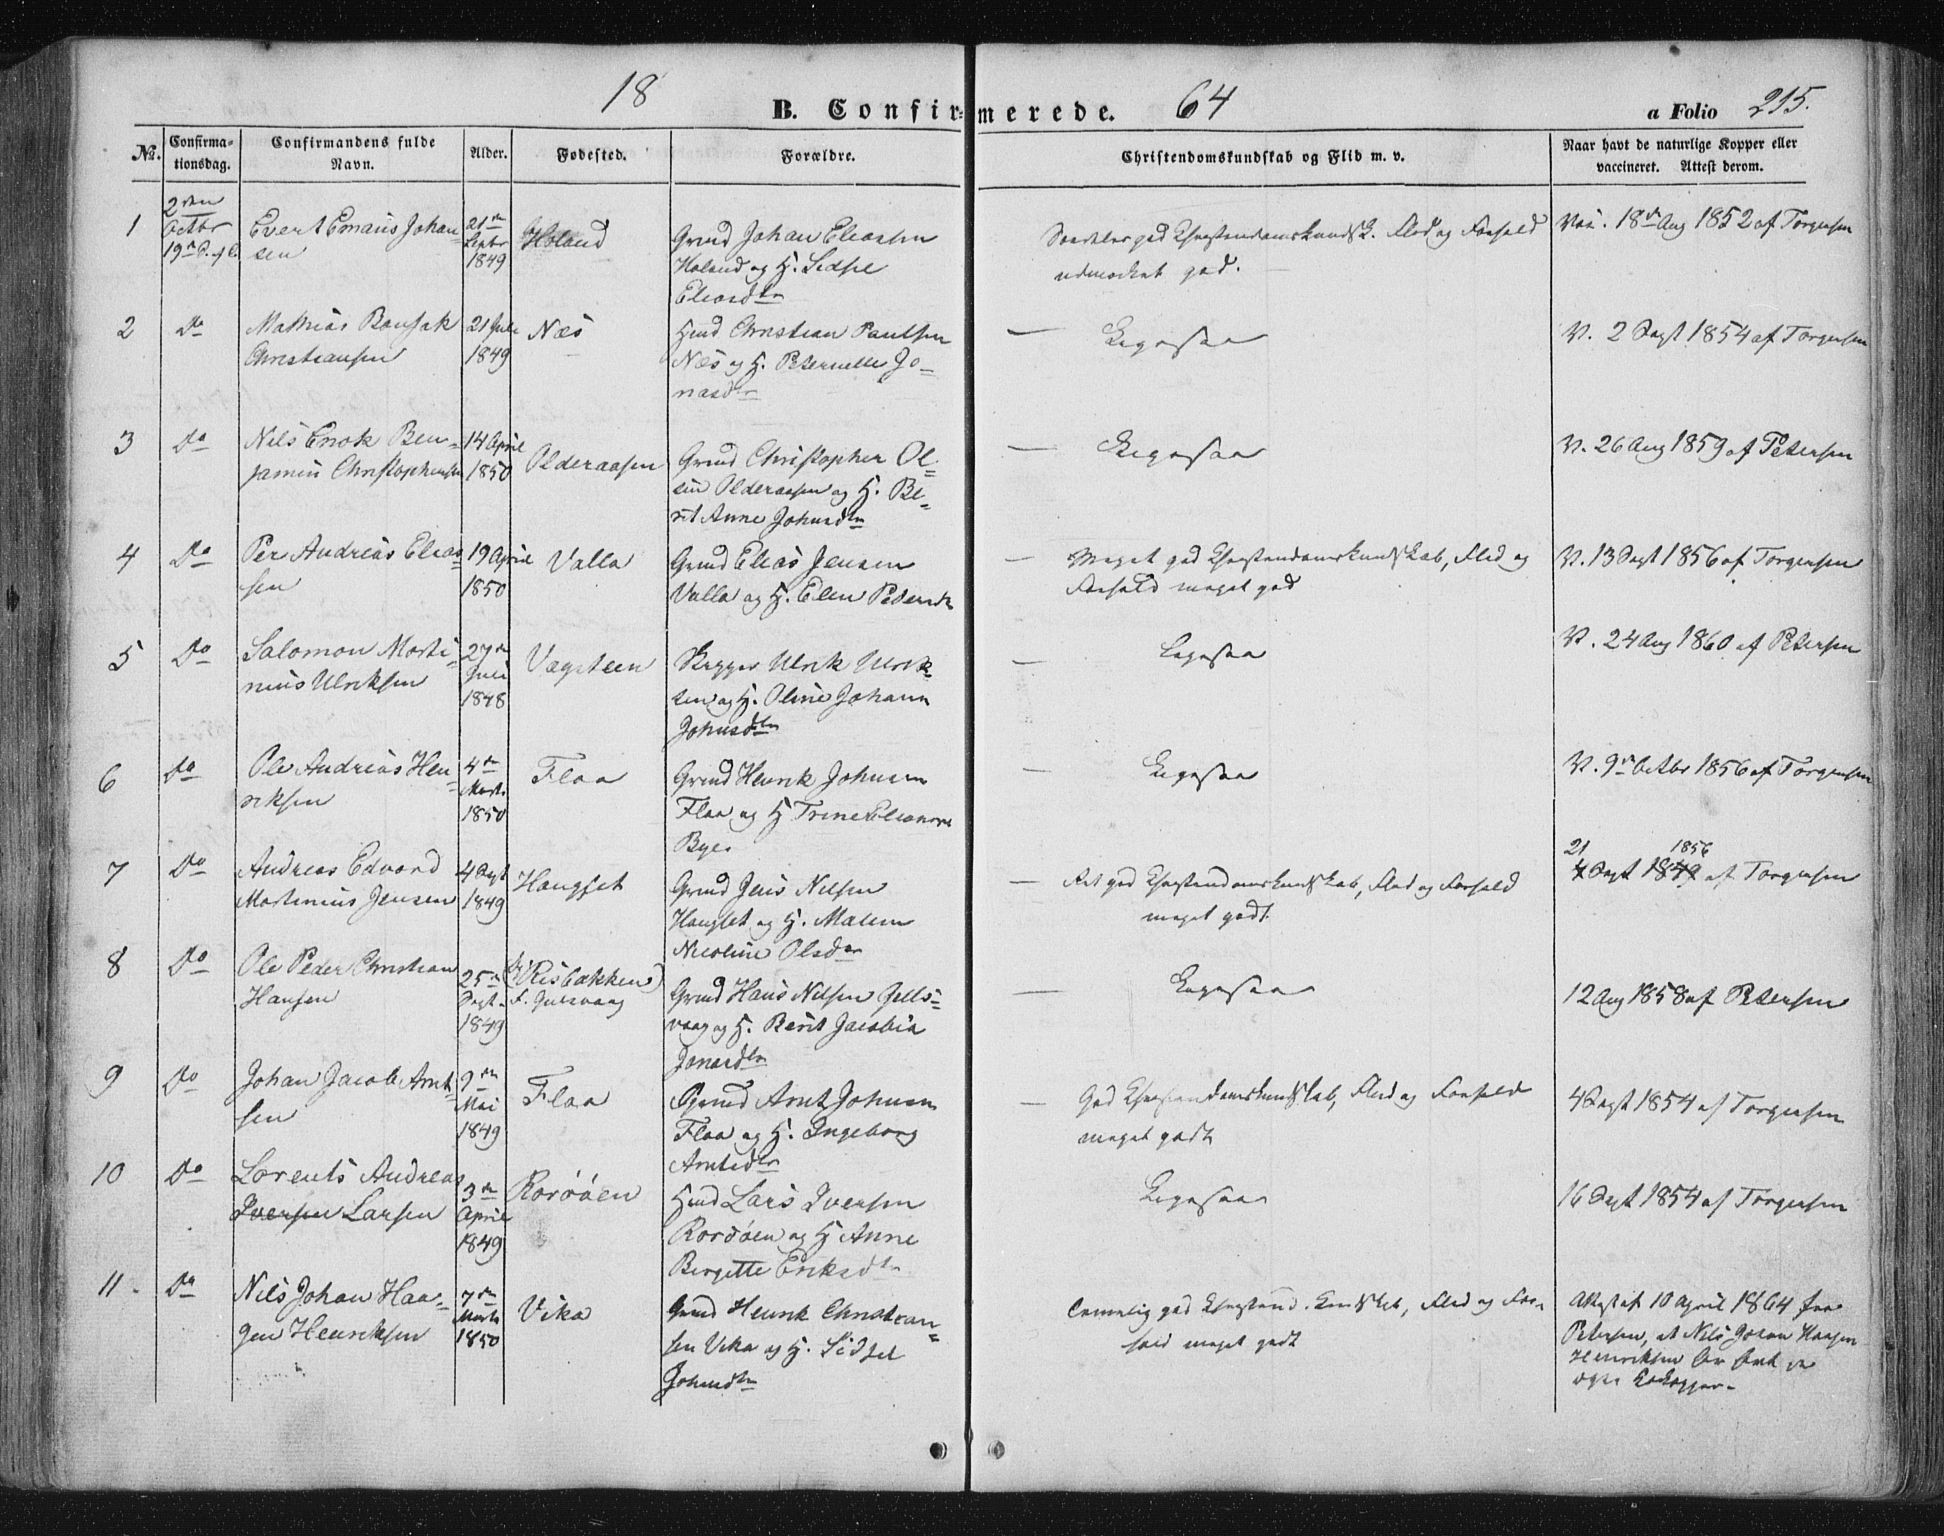 18 B. Confirmerede. 64 a Folio 215.
No. Confirmationsdag. Confirmandens fulde Navn. Alder. Fødested. Forældre. Christendomskundskab og Flid m. v. Naar havt de naturlige Kopper eller vaccineret. Attest derom.
1 2den Octbr 19de S. ef.
Evert Emaus Johan-
sen
21de Septbr 1849
Holand
Grmd Johan Eliassen
Holand og H. Sidsel
Eliasdtr
Særdeles god Christendomskundsk. Flid og Forhold
udmærket god.
Vac. 18de Aug 1852 af Torgersen
2 Do
Mathias Bonsak
Christiansen
21 Juli
1849
Næs
Hmd Christian Paulsen
Næs og H. Peternelle Jo-
nasdtr
— Ligesaa
V. 2 Sept 1854 af Torgersen
3 Do
Nils Enok Ben-
jamin Christophersen
14 April
1850
Olderaasen
Grmd Christopher Ol-
sen Olderaasen og H. Be-
rit Anne Johnsdtr
— Ligesaa
V. 26 Aug 1859 af Petersen
4 Do
Per Andreas Elias-
sen
19 April
1850
Valla
Grmd Elias Jensen
Valla og H. Elen Pedersdr
— Meget god Christendomskundskab, Flid og
Forhold meget god
V. 13 Sept 1856 af Torgersen
5 Do
Salomon Morti-
nius Ulriksen
27de
Juli
1848
Vagsteen
Skipper Ulrik Ulrik-
sen og H. Oline Johann
Johnsdtr
— Ligesaa
V. 24 Aug 1860 af Petersen
6 Do
Ole Andreas Hen-
riksen
4de
Marts
1850
Flaa
Grmd Henrik Johnsen
Flaa og H Trine Elianora
Byes
— Ligesaa
V. 9de Octbr 1856 af Torgersen
7 Do
Andreas Edvard
Martinius Jensen
4 Sept
1849
Haugset
Grmd Jens Nilsen
Haugset og H. Malen
Nicoline Olsdtr
— Ret god Christendomskundskab, Flid og Forhold
meget godt
21 1856
4 Sept 1849 af Torgersen
8 Do
Ole Peder Christian
Hansen
25de
Sept.
1849
(Risbakken)
Grmd Hans Nilsen Gulls-
vaag og H. Berit Jacobia
Jonasdtr
— Ligesaa
12 Aug 1858 af Petersen
9 Do
Johan Jacob Arnt-
sen
9de
Mai
1849
Flaa
Grmd Arnt Johnsen
Flaa og H. Ingeborg
Arntsdtr
— God Christendomskundskab, Flid og Forhold
meget godt
4 Sept 1854 af Torgersen
10 Do
Lorents Andreas
Iversen Larsen
3de
April
1849
Rorøøen
Hmd Lars Iversen
Rorøøen og H Anne
Birgitte Eriksdtr
Ligesaa
16 Sept 1854 af Torgersen
11 Do
Nils Johan Haa-
gen Henriksen
7de
Marts
1850
Vika
Grmd Henrik Christian-
sen Vika og H. Sidsel
Johnsdtr
Temmelig god Christend. Kundskab, Flid og For-
hold meget godt
Attest af 10 April 1864 fra
Petersen, at Nils Johan Haagen
Henriksen